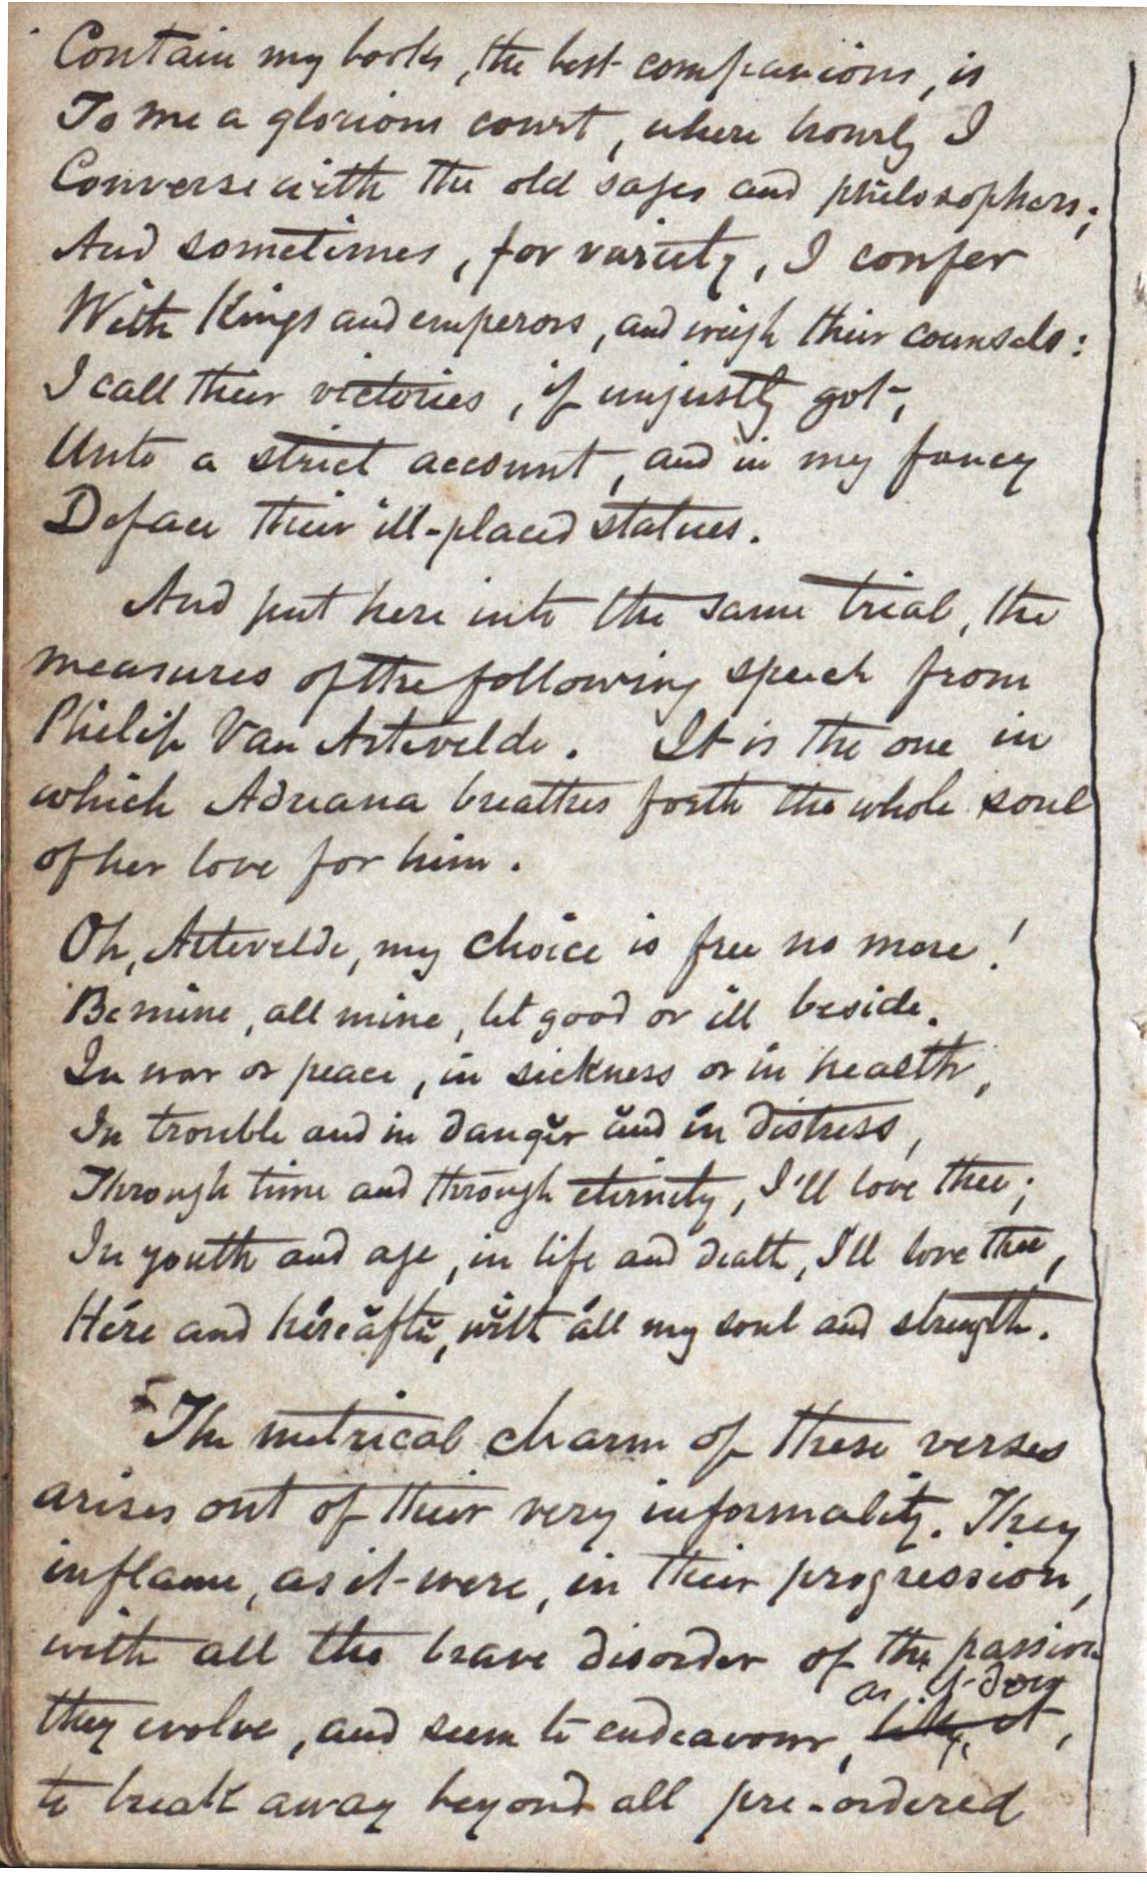 Contain my books, the best companions, is
To me a glorious court, where hourly I
Converse with the old sages and philosophers;
And sometimes, for variety, I confer
With Kings and emperors, and weigh their counsels:
I call their victories, if unjustly got,
Unto a strict account, and in my fancy
Deface their ill-placed statues.
And put here into the same trial, the
measures of the following speech from
Philip Van Artevelde. It is the one in
which Adriana breathes forth the whole soul
of her love for him.
Oh, Artevelde, my choice is free no more!
Be mine, all mine, let good or ill beside.
In war or peace, in sickness or in health,
In trouble and in dangĕr ănd ín distress,
Through time and through eternity, I'll love thee;
In youth and age, in life and death, I'll love thee,
Hére and héreăftĕr, wĭth áll my soul and strength.
The metrical charm of these verses
arises out of their very informality. They
inflame, as it were, in their progression,
with all the brave disorder of the passion
they evolve, and seem to endeavour, as it does,
to break away beyond all pre-ordered